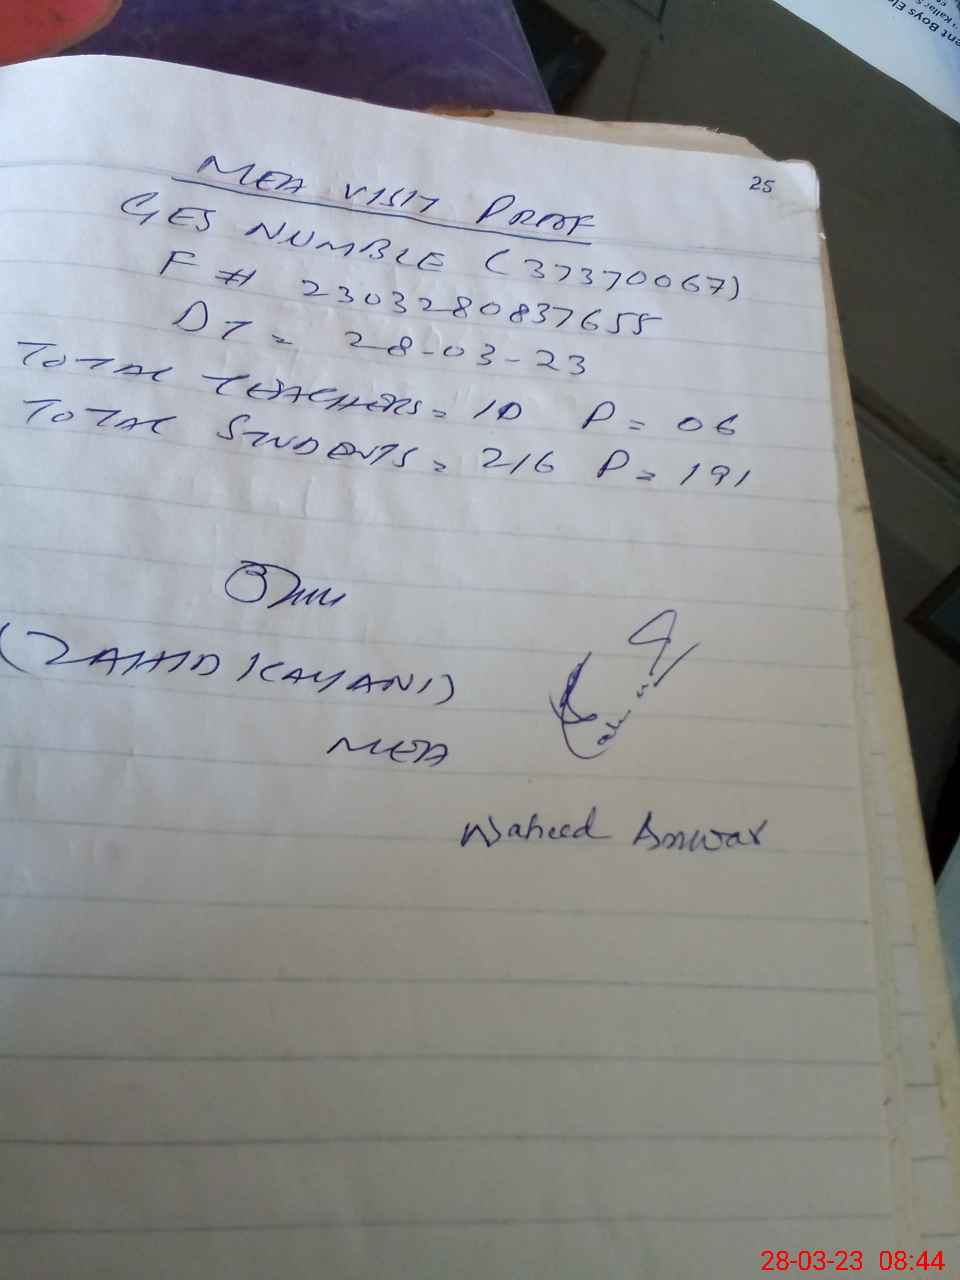 25
MEA VISIT PROOF
GES NUMBLE (37370067)
F # 2303280837655
DT = 28-03-23
TOTAL TEACHERS = 10 P = 06
TOTAL STUDENTS = 216 P = 191
(ZAHID KAYANI)
MEA
Naheed Anwar
28-03-23 08:44